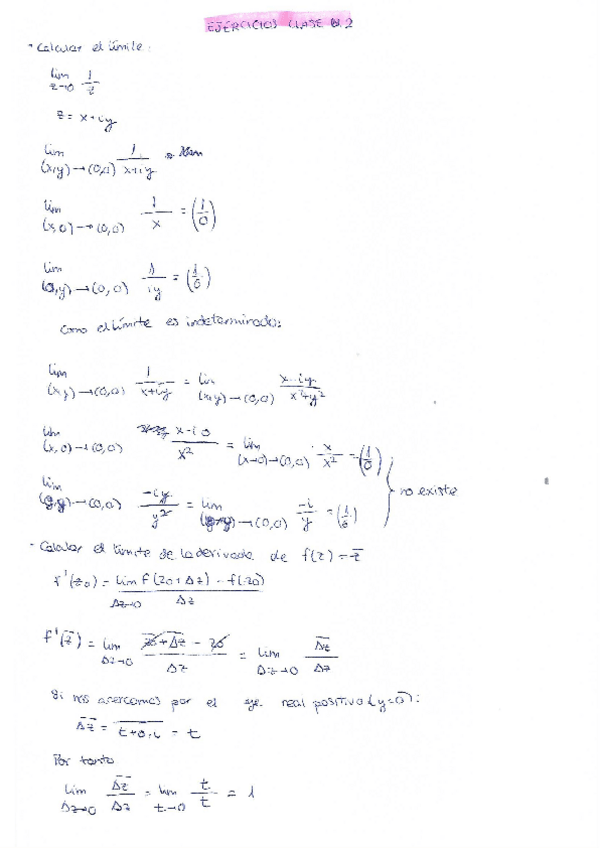 EJERCICIOS CLASE
· Calcular el límite:
lim z→0 1/z
z = x+iy
lim (x,y)→(0,0) 1/(x+iy)
lim (x,0)→(0,0) 1/x = (1/0)
lim (0,y)→(0,0) 1/(iy) = (1/0)
Como el límite es indeterminado:
lim (x,y)→(0,0) 1/(x+iy) = lim (x,y)→(0,0) (x-iy)/(x²+y²)
lim (x,0)→(0,0) (x-i0)/x² = lim (x→0)→(0,0) x/x² = (1/0)
lim →(0,0) -iy/y² = lim →(0,0) -i/y = (1/0)
no existe
· Calcular el límite de la derivada de f(z) = z̅
f'(z0) = lim Δz→0 f(z0+Δz) - f(z0) / Δz
f'(z̅) = lim Δz→0 (z̅0̅+Δ̅z̅ - z̅0̅)/Δz = lim Δz→0 Δ̅z̅/Δz
Si nos acercamos por el eje real positivo (y=0):
Δ̅z̅ = t+0·i = t
Por tanto
lim Δz→0 Δ̅z̅/Δz = lim t→0 t/t = 1